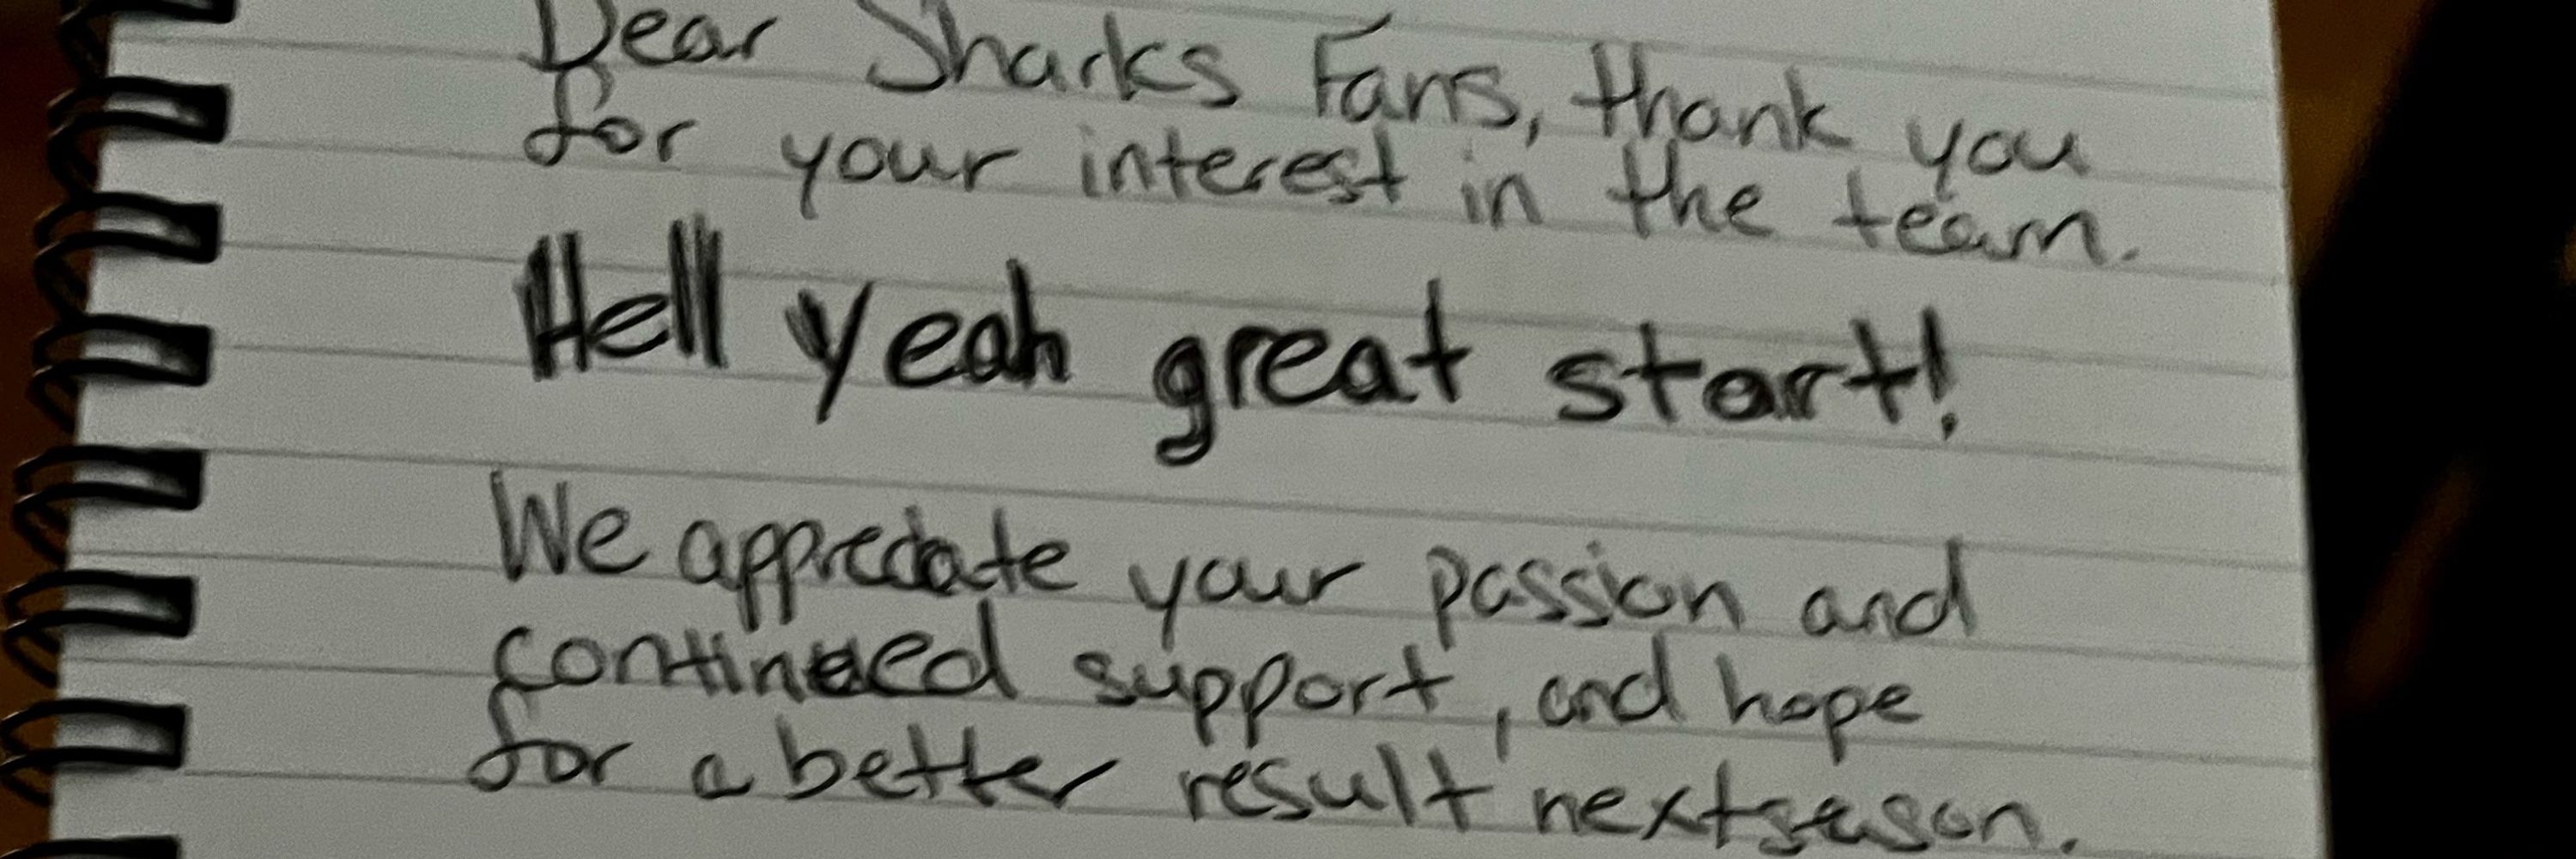 Dear Sharks Fans, thank you
for your interest in the team.
Hell yeah great start!
We appreciate your passion and
continued support, and hope
for a better result next season.